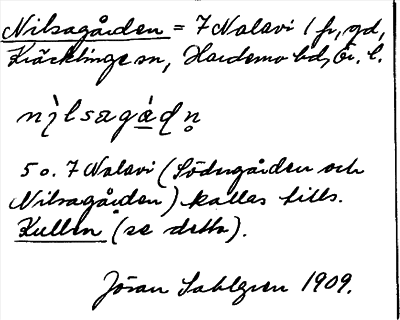 Nilsagården = 7 Nalavi 1 fr, gd,
Kräcklinge sn, Hardemo hd, Ör. l.
nìlsagá̱dn̥
5 o. 7 Nalavi (Södergården och
Nilsagården) kallas tills.
Kullen (se detta).
Jöran Sahlgren 1909.